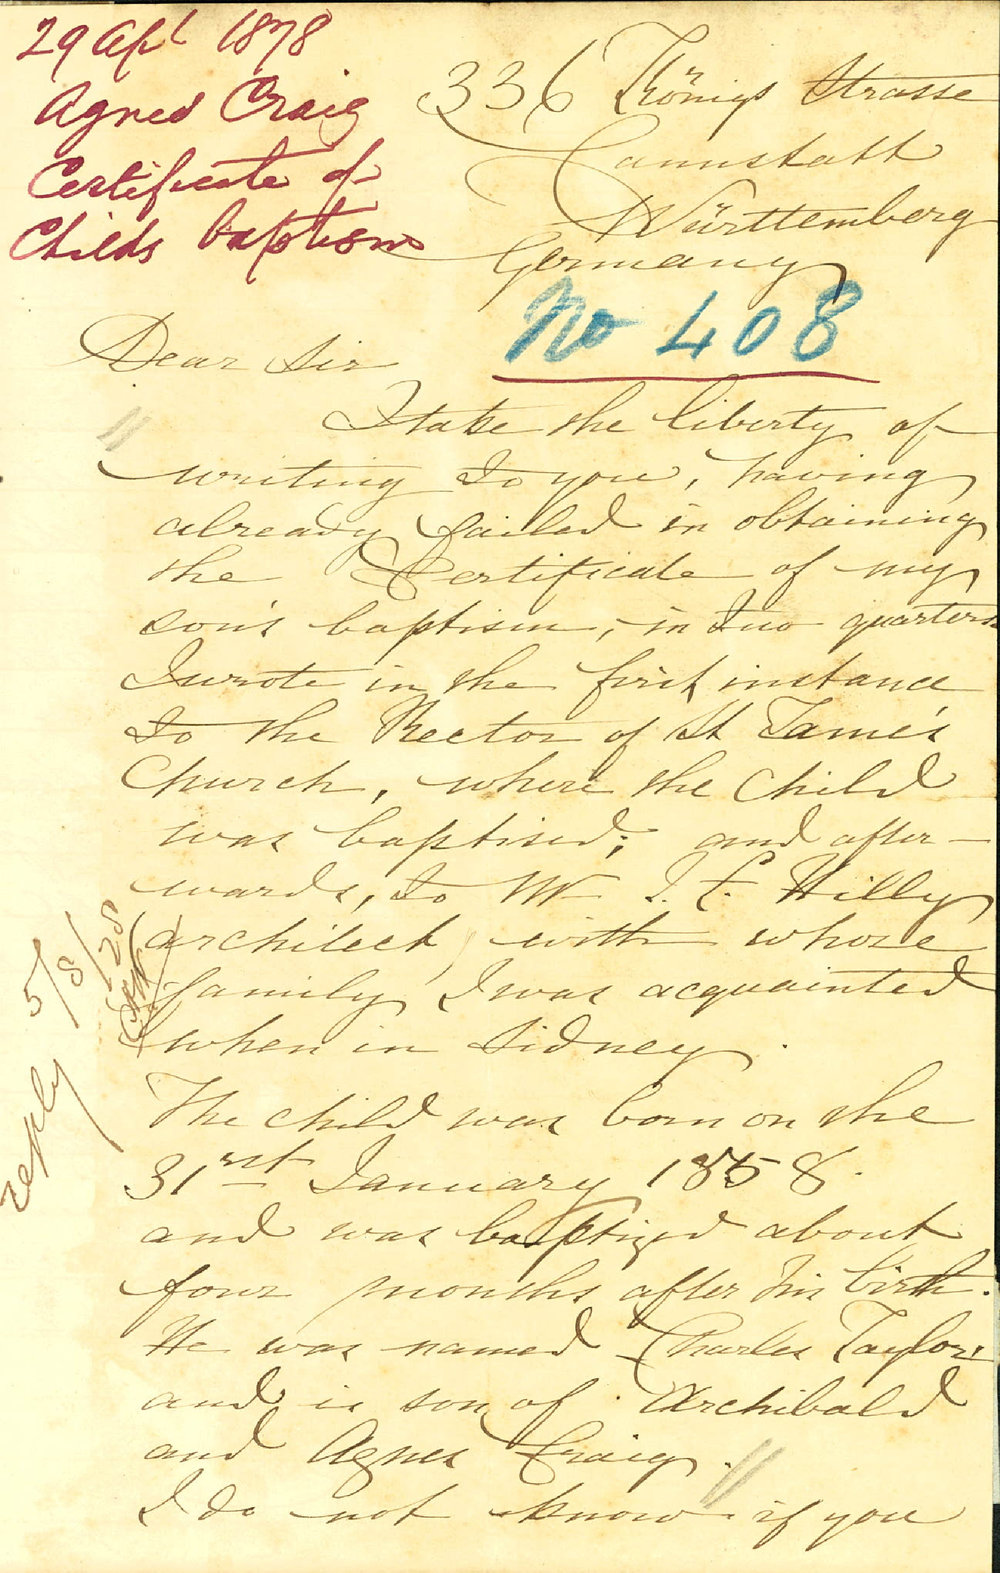 29 Apl 1878
Agnes Craig
Certificate of
Childs baptism
336 Königs Strasse
Cannstatt
Württemberg
Germany
No 408
Dear Sir
I take the liberty of
writing to you, having
already failed in obtaining
the Certificate of my
son's baptism, in two quarters
I wrote in the first instance
to the Rector of St Jame's
Church, where the child
was baptised; and after-
wards, to Mr Hilly
architect, with whose
family I was acquainted
when in Sidney.
reply 5/8/28
The child was born on the
31rst January 1858.
and was baptized about
four months after his birth.
He was named Charles Taylor,
and is son of Archibald
and Agnes Craig.
I do not know if you